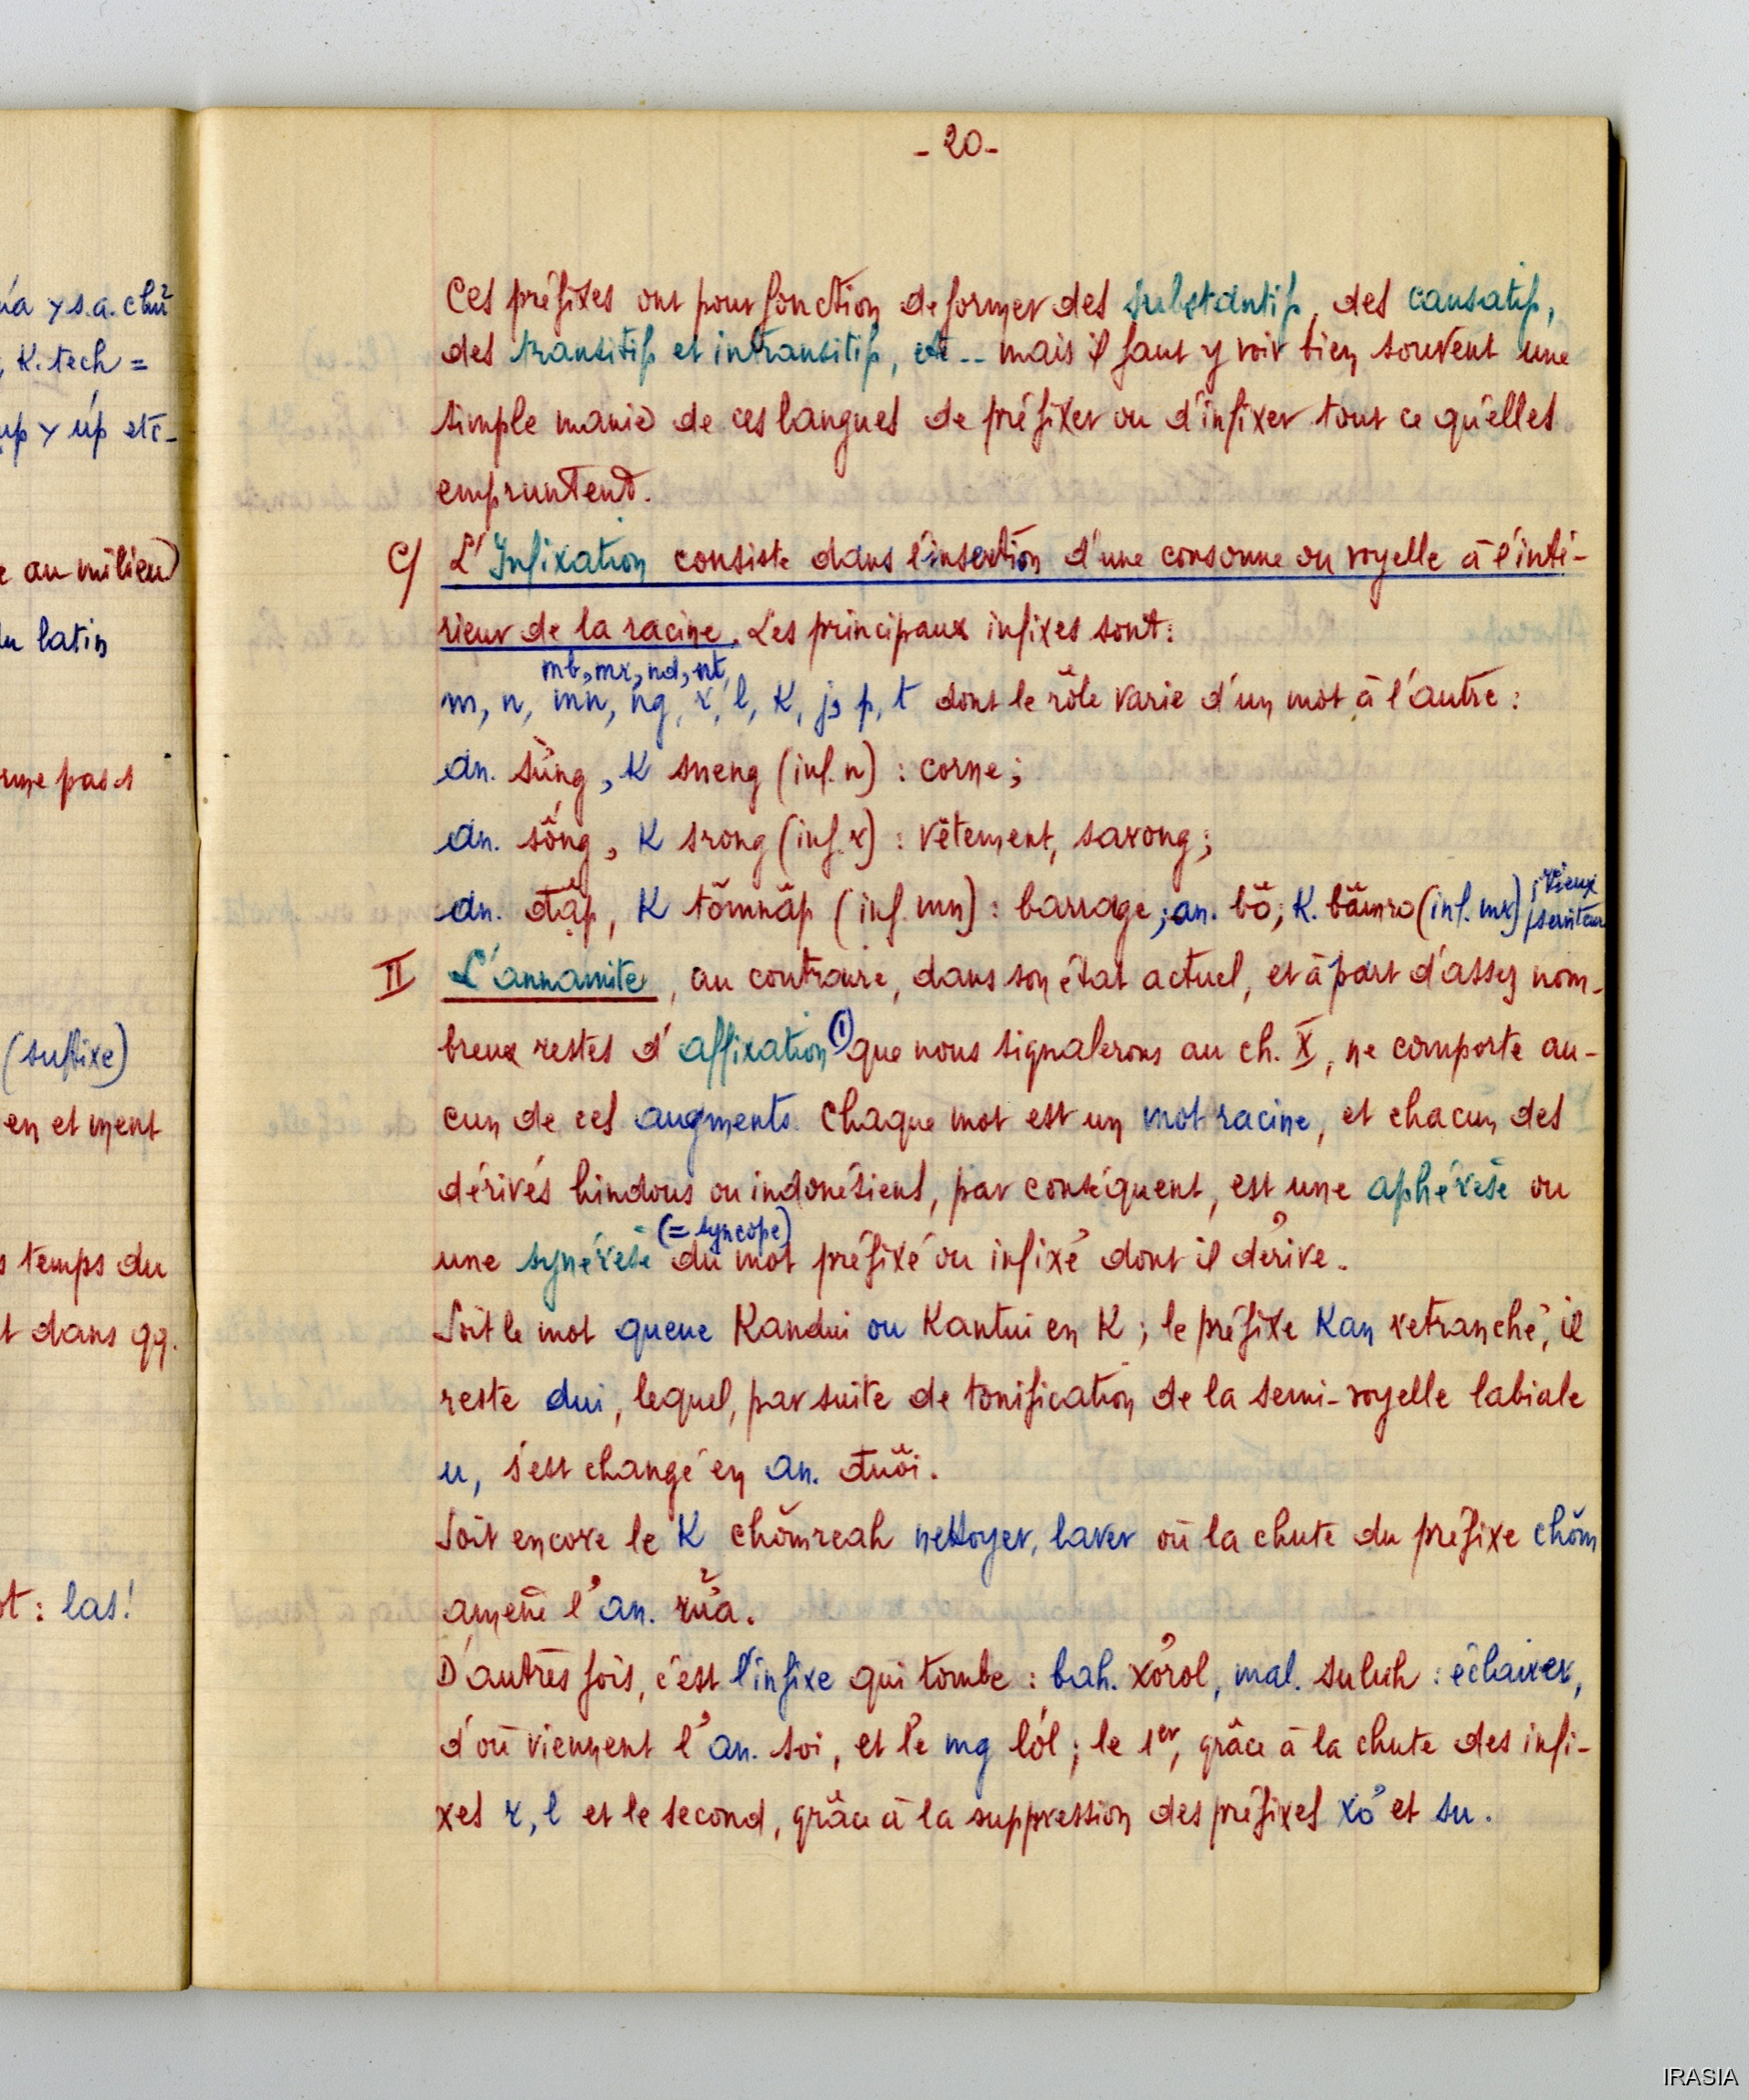 úa > s.a. chử
, K. tech =
úp > úp etc-
e au milieu)
du latin
rme pas s
(suffixe)
en et ment
s temps du
t dans qq.
ot : las!
- 20 -
Ces préfixes ont pour fonction de former des substantifs, des causatifs,
des transitifs et intransitifs, etc -- mais il faut y voir bien souvent une
simple manie de ces langues de préfixer ou d'infixer tout ce qu'elles
empruntent.
C/ L'Infixation consiste dans l'insertion d'une consonne ou voyelle à l'inté-
rieur de la racine. Les principaux infixes sont:
mb, mr, nd, nt,
m, n, mn, ng, r, l, K, j, p, t dont le rôle varie d'un mot à l'autre :
an. sừng, K sneng (inf. n) : corne;
an. sống, K srong (inf. r) : vêtement, sarong;
an. đập, K tõmnâp (inf. mn) : barrage; an. bõ; K. bãmro (inf. mr) ; vieux
serviteur
II L'annamite, au contraire, dans son état actuel, et à part d'assez nom-
breux restes d'affixation ① que nous signalerons au ch. X, ne comporte au-
cun de ces augments. Chaque mot est un mot racine, et chacun des
dérivés hindous ou indonésiens, par conséquent, est une aphérèse ou
(= syncope)
une synérèse du mot préfixé ou infixé dont il dérive.
Soit le mot queue Kandui ou Kantui en K ; le préfixe Kan retranché, il
reste dui, lequel, par suite de tonification de la semi-voyelle labiale
u, s'est changé en an. đuôi.
Soit encore le K chõmreah nettoyer, laver où la chute du préfixe chõm
amène l'an. rửa.
D'autres fois, c'est l'infixe qui tombe : bah. xơrol, mal. suluh : éclairer,
d'où viennent l'an. soi, et le mg lól ; le 1er, grâce à la chute des infi-
xes r, l et le second, grâce à la suppression des préfixes xơ et su.
IRASIA